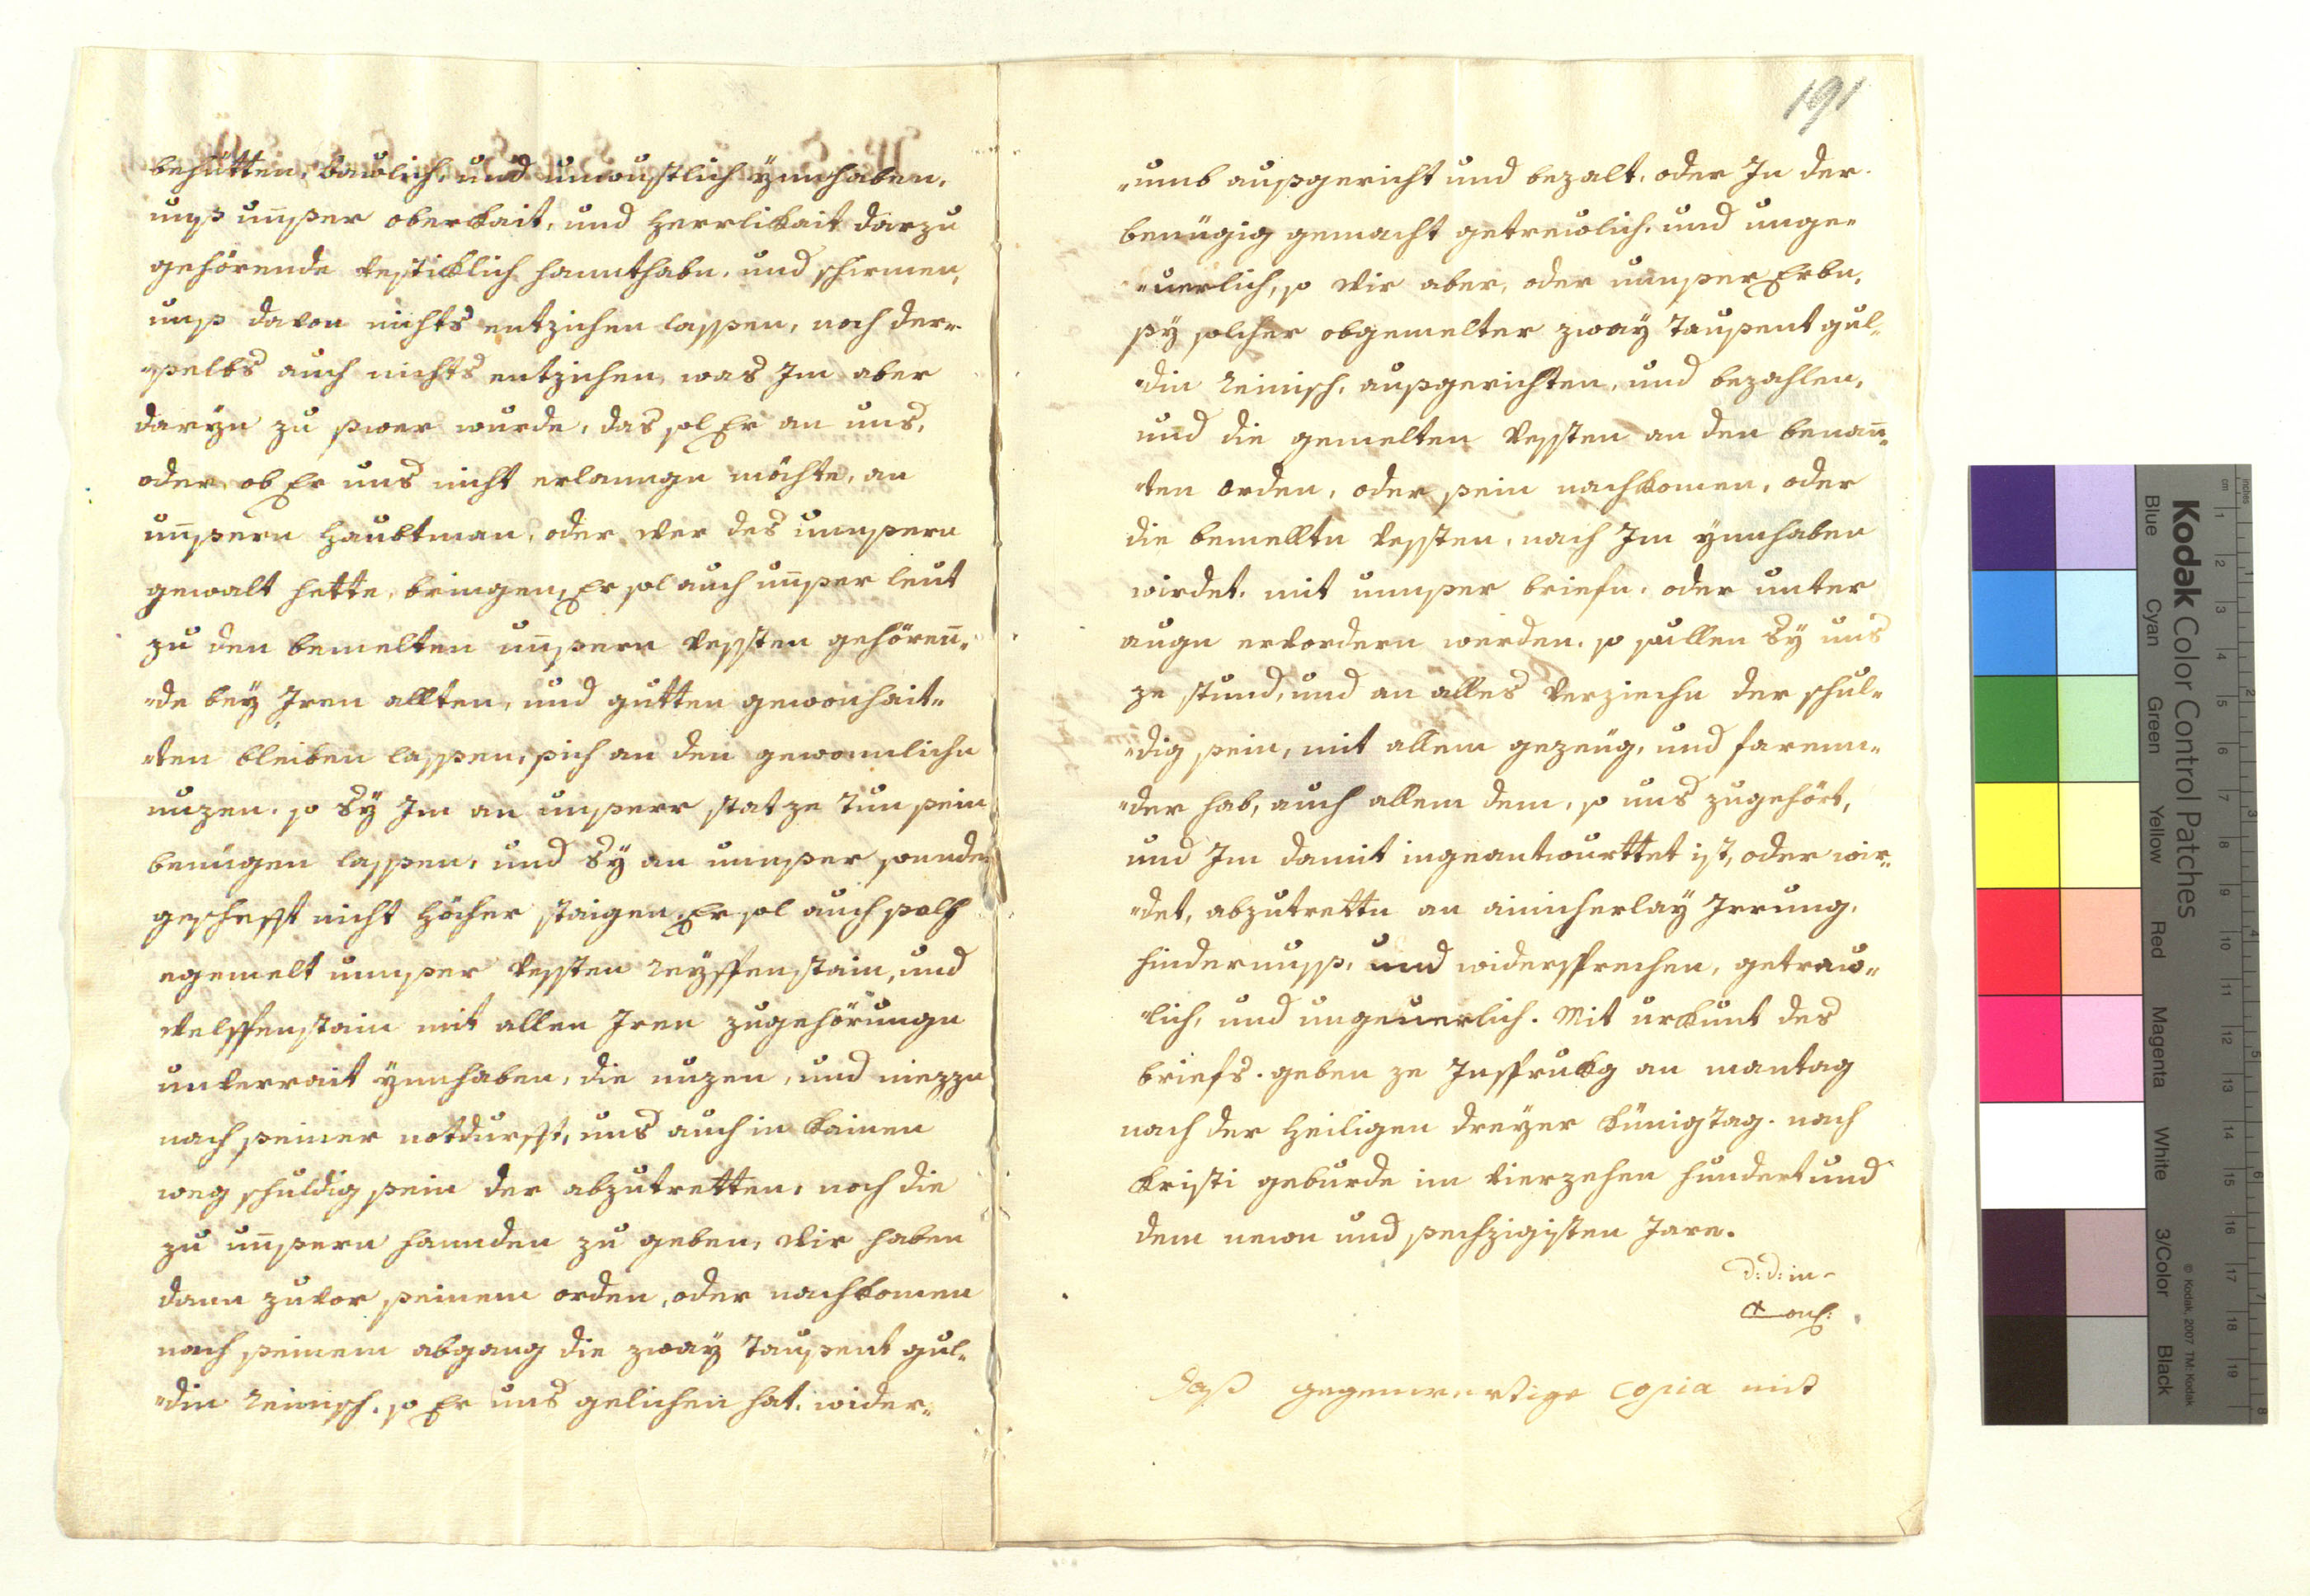 behütten, bawlich, und unwustlich ynnhaben,
unß un̄ser oberkait, und herrlikait darzu
gehörende vestiklich hannthabn, und schirmen,
unß davon nichts entzichen lassen, noch der„
„selbs auch nichts entzichen, was Im aber
daryn zu swer wurde, das sol Er an uns,
oder, ob Er uns nicht erlanngn möchte, an
un̄sern haubtman, oder wer des unnsern
gewalt hette, bringen, Er sol auch un̄ser leut
zu den bemelten un̄sern vessten gehören̄„
„de bey Iren allten, und gutten gewonhait„
„ten bleiben lassen, sich an den gewonnlichn
nuzen, so Sy Im an unserr stat ze tun sein
benügen lassen, und Sy an unnser sonnder
geschefft nicht höcher staigen, Er sol auch solh
egemelt unnser vessten Reyffenstain, und
Welffenstain mit allen Iren zugehörungn
unverrait ynnhaben, die nuzen, und niezzn
nach seiner notdurfft, uns auch in kainen
weg schuldig sein der abzutretten, noch die
zu un̄sern hannden zu geben, wir haben
dann zuvor seinem orden, oder nachkomen
nach seinem abgang die zway tausent gul„
„din Reinisch, so Er uns gelichen hat, wider„
191
„umb außgericht und bezalt, oder In der
benügig gemacht getrewlich, und unge„
„uerlich, so wir aber, oder unnser Erbn,
sy solcher obgemelter zway tausent gul„
„din Reinisch, außgerichten, und bezahlen,
und die gemelten vessten an den benan̄„
„ten orden, oder sein nachkomen, oder
die bemelltn vessten, nach Im ynnhaben
wirdet, mit unnser briefn, oder unter
augn ervordern werden, so sullen Sy uns
ze stund, und an alles verziechn der schul„
„dig sein, mit allem gezeüg, und farenn„
„der hab, auch allem dem, so uns zugehört,
und Im damit ingeantwurttet ist, oder wir„
„det, abzutrettn an ainicherlay Irrung,
hindernuss, und widersprechen, getrew„
„lich, und ungeuerlich. Mit urkunt des
briefs. geben ze Insprukg an mantag
nach der heiligen dreyer künigtag. nach
kristi geburde im vierzehen hundert und
dem newn und sechzigisten Jare.
d: d: in
Daß gegenwertige copia mit
Kodak Color Control Patches
Blue Cyan Green Yellow Red Magenta White 3/Color Black
© Kodak, 2007 TM: Kodak
inches 1 2 3 4 5 6 7 8
cm 1 2 3 4 5 6 7 8 9 10 11 12 13 14 15 16 17 18 19